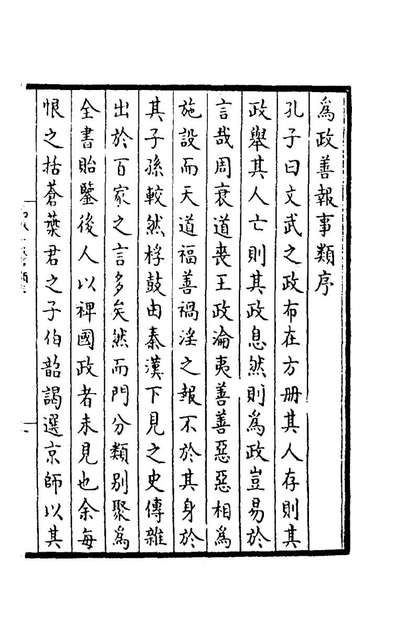 為政善報事類序
孔子曰文武之政布在方冊其人存則其
政舉其人亡則其政息然則為政豈易於
言哉周衰道喪王政淪夷善善惡惡相為
施設而天道福善禍淫之報不於其身於
其子孫較然桴鼓由秦漢下見之史傳雜
出於百家之言多矣然而門分類別聚為
全書貽鑒後人以裨國政者未見也余每
恨之括蒼葉君之子伯韶謁選京師以其